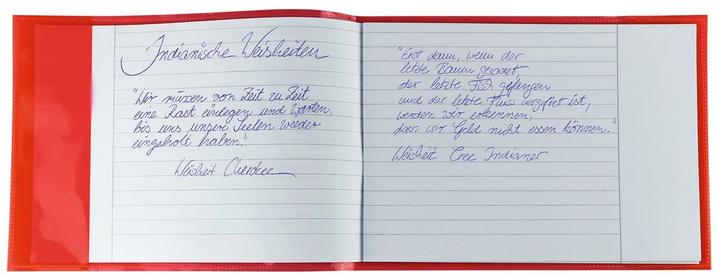 Indianische Weisheiten
"Wir müssen von Zeit zu Zeit
eine Rast einlegen und warten,
bis uns unsere Seelen wieder
eingeholt haben."
Weisheit Cherokee
"Erst dann, wenn der
letzte Baum gerodet,
der letzte Fisch gefangen
und der letzte Fluss vergiftet ist,
werden wir erkennen,
dass wir Geld nicht essen können."
Weisheit Cree Indianer